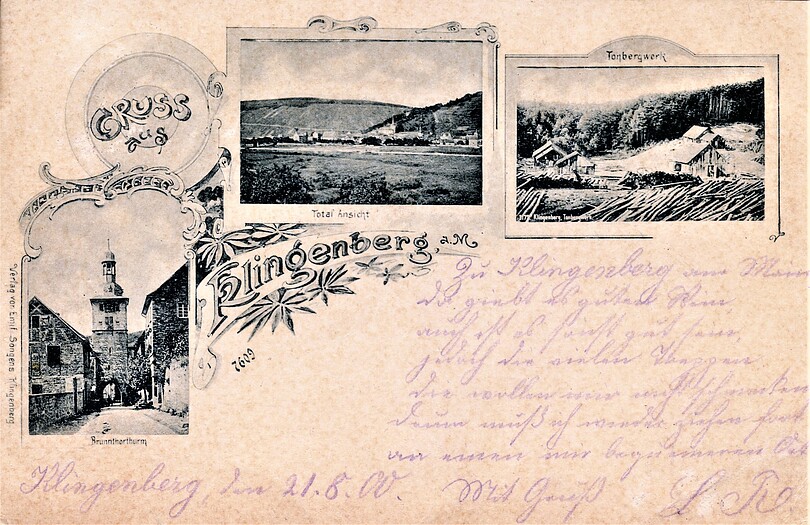 GRUSS
aus
Total Ansicht
Tonbergwerk
Klingenberg, Tonbergwerk.
Klingenberg, a. M.
7609
Brunnthorthurm
Verlag von Emil Songens Klingenberg
Zu Klingenberg am Main
Da giebt es guten Wein
auch ist es sonst gut sein,
jedoch die vielen Treppen
Die wollen mir nicht schmecken
Drum muß ich wieder ziehen fort
an einen mir bequemeren Ort
Klingenberg, den 21.8.00. Mit Gruß L R